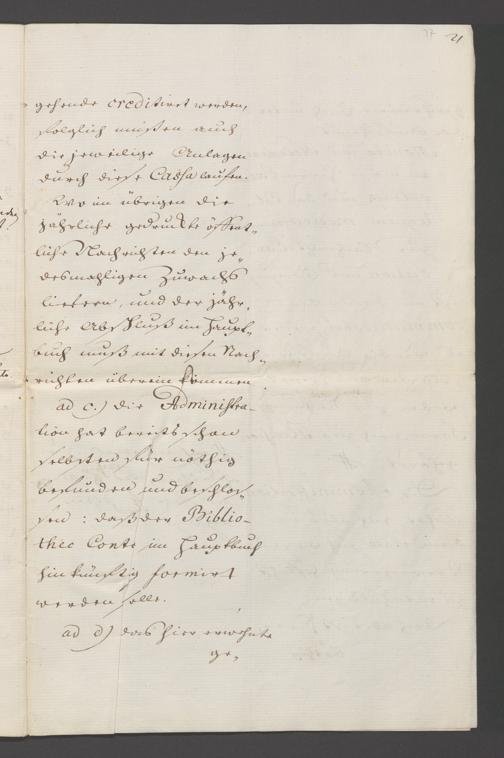 21
gehende creditiret werden,
folglich müssen auch
die jeweilige Anlagen
durch diese Cassa laufen.
Wo im übrigen die
jährliche gedruckte öffent„
liche Nachrichten den je„
desmahligen Zuwachs
liefern, und der jähr„
liche Abschluß im Haupt„
buch muß mit diesen Nach„
richten überein kommen.
ad c.) die Administra–
tion hat bereits schon
selbsten für nöthig
befunden und beschlos–
sen: daß der Biblio–
thec Conto im Hauptbuch
hinkünftig formirt
werden solle.
ad d) das hier erwehnte
ge„